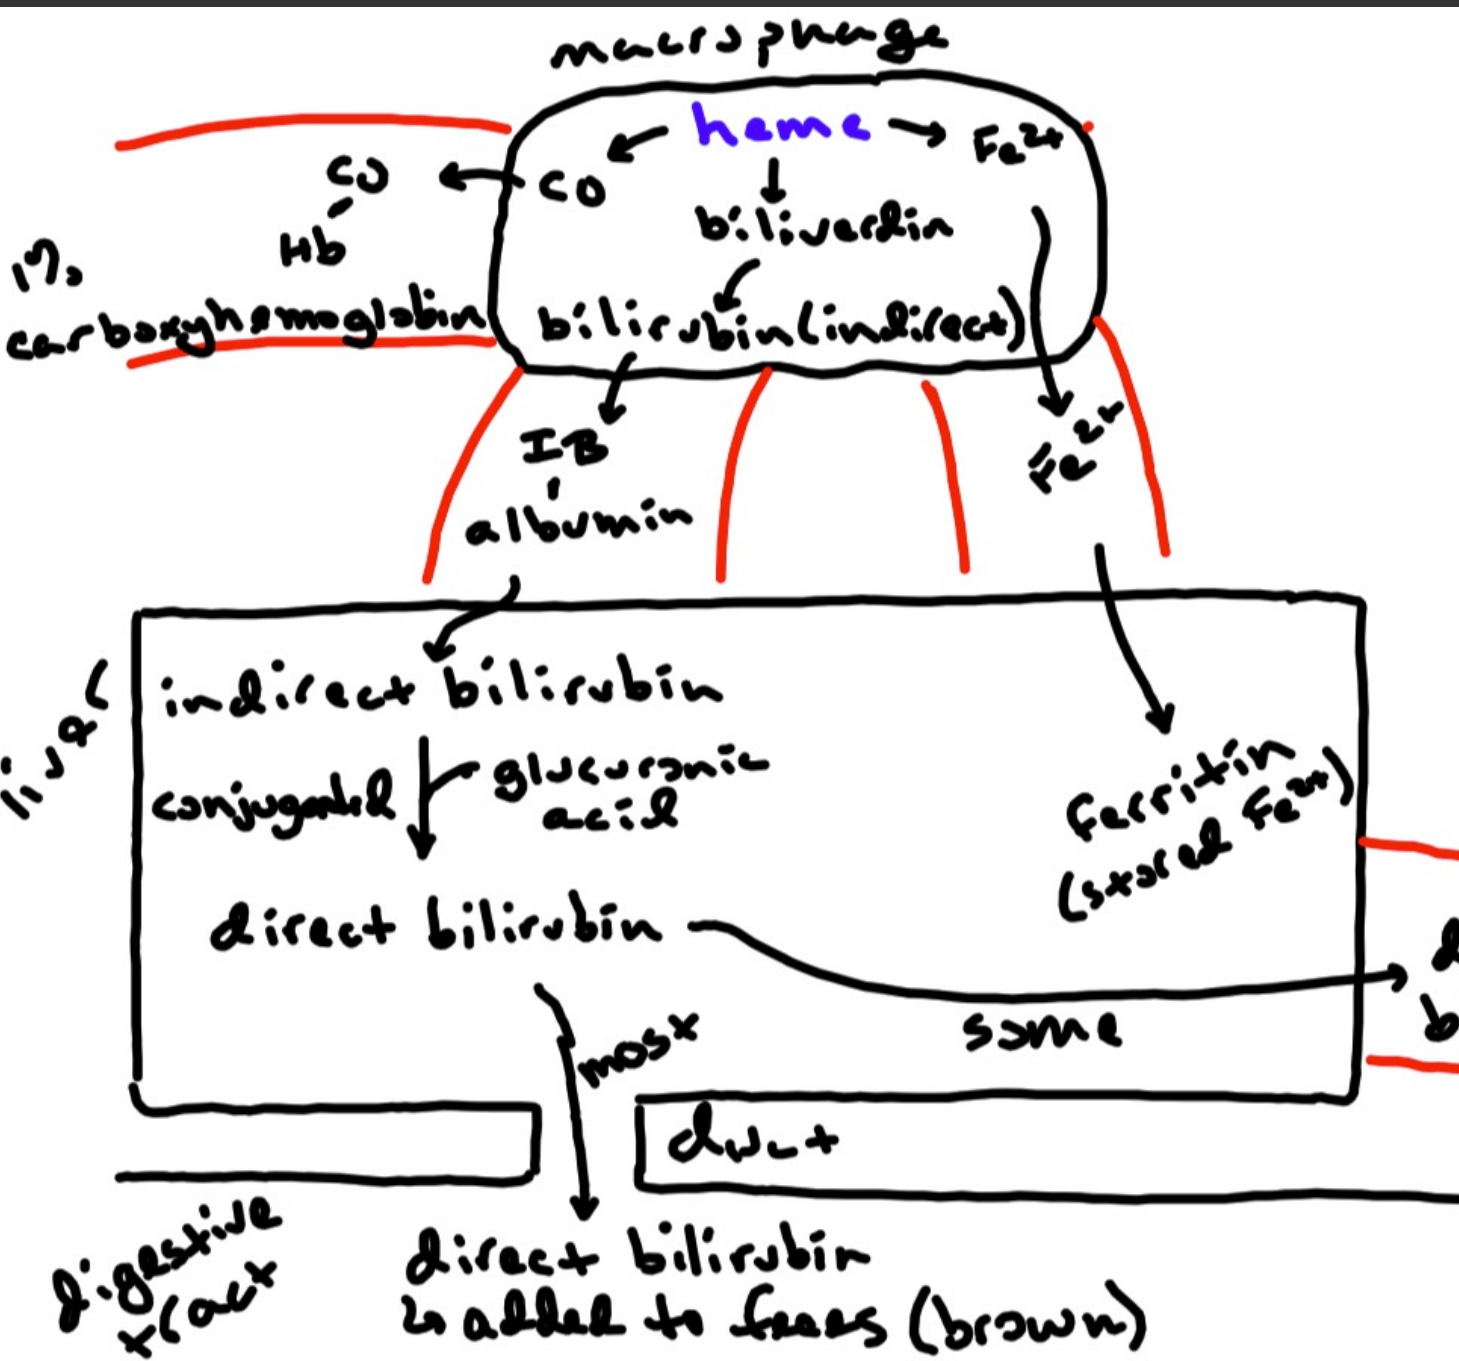 macrophage
heme
CO
Fe2+
CO
Hb
biliverdin
1%
carboxyhemoglobin
bilirubin (indirect)
IB
albumin
Fe2+
liver
indirect bilirubin
conjugated
glucuronic
acid
ferritin
(stored Fe2+)
direct bilirubin
d
b
most
some
duct
digestive
tract
direct bilirubin
is added to feces (brown)